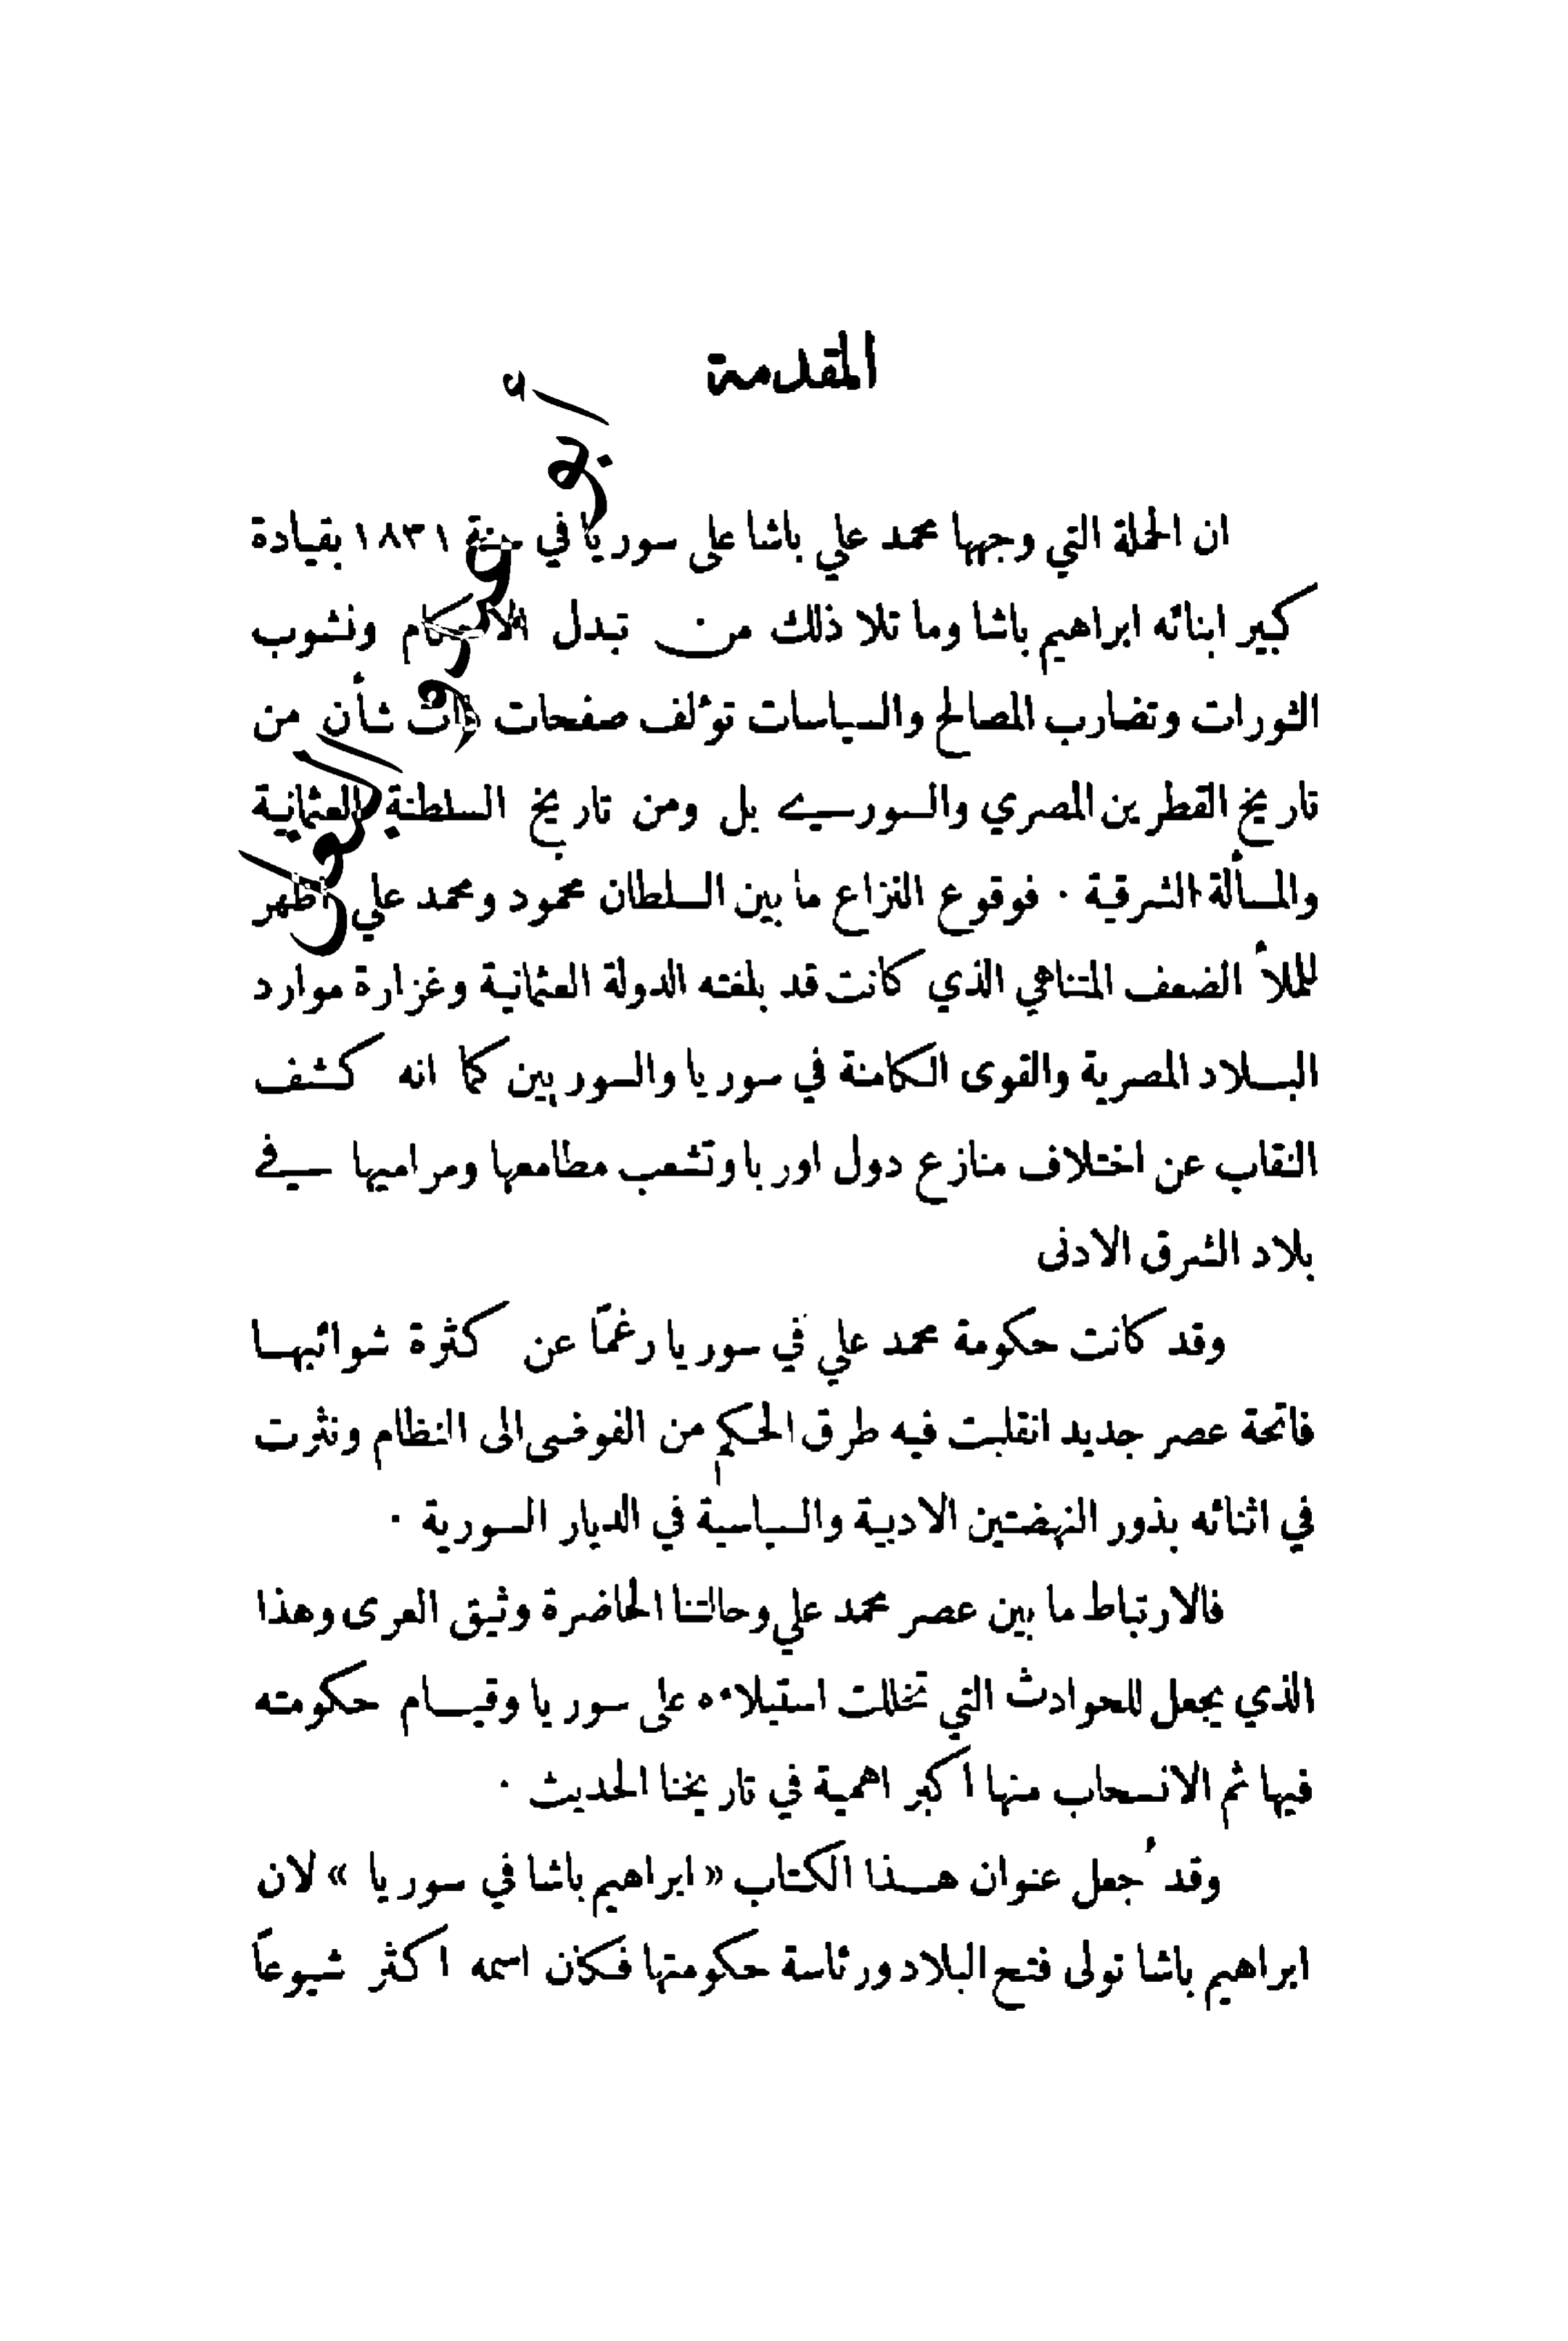 المقدمة
ان الحملة التي وجهها محمد علي باشا على سوريا في سنة ١٨٣١ بقيادة
كبير ابنائه ابراهيم باشا وما تلا ذلك من تبدل الاحكام ونشوب
الثورات وتضارب المصالح والسياسات تؤلف صفحات ذات شأن من
تاريخ القطرين المصري والسوري بل ومن تاريخ السلطنة العثمانية
والمسألة الشرقية . فوقوع النزاع ما بين السلطان محمود ومحمد علي اظهر
للملأ الضعف المتناهي الذي كانت قد بلغته الدولة العثمانية وغزارة موارد
البلاد المصرية والقوى الكامنة في سوريا والسوريين كما انه كشف
النقاب عن اختلاف منازع دول اوربا وتشعب مطامعها ومراميها في
بلاد الشرق الادنى
وقد كانت حكومة محمد علي في سوريا رغماً عن كثرة شوائبها
فاتحة عصر جديد انقلبت فيه طرق الحكم من الفوضى الى النظام ونثرت
في اثنائه بذور النهضتين الادبية والسياسية في الديار السورية .
فالارتباط ما بين عصر محمد علي وحالتنا الحاضرة وثيق العرى وهذا
الذي يجعل للحوادث التي تخللت استيلاءه على سوريا وقيام حكومته
فيها ثم الانسحاب منها اكبر اهمية في تاريخنا الحديث .
وقد جُعل عنوان هذا الكتاب « ابراهيم باشا في سوريا » لان
ابراهيم باشا تولى فتح البلاد ورئاسة حكومتها فكان اسمه اكثر شيوعاً